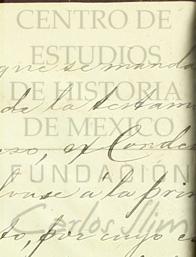 CENTRO DE
ESTUDIOS
que se manda
DE HISTORIA
de la testam
DE MEXICO
uso, el Conde
FUNDACIÓN
a la prim
Carlos Slim
to, por cuyo